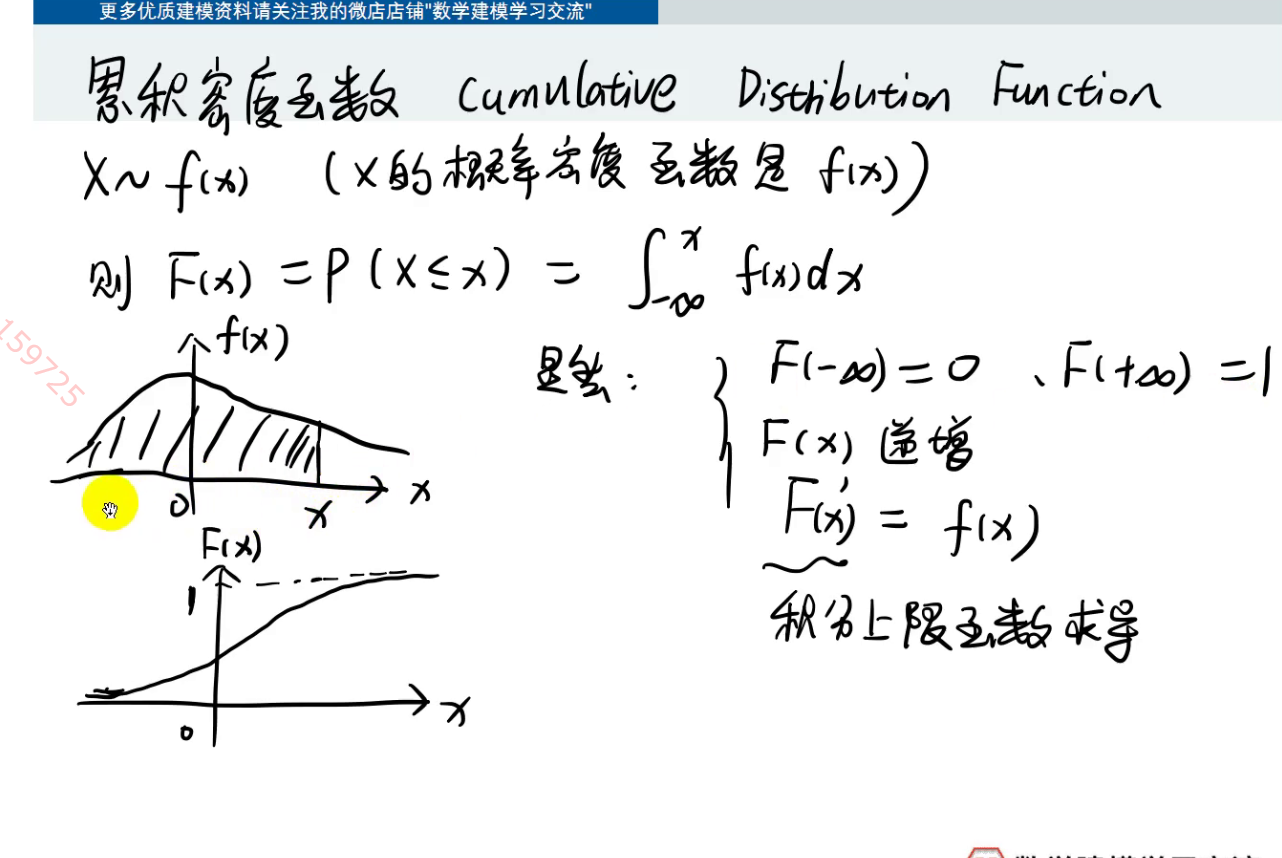 更多优质建模资料请关注我的微店店铺"数学建模学习交流"
累积密度函数 Cumulative Distribution Function
X~f(x) (X的概率密度函数是 f(x))
则 F(x) = P(X≤x) = ∫_{-∞}^{x} f(x)dx
159725
f(x)
0 x x
显然: { F(-∞)=0、F(+∞)=1
F(x) 递增
F(x)' = f(x)
积分上限函数求导
F(x)
1
0 x
数学建模学习交流